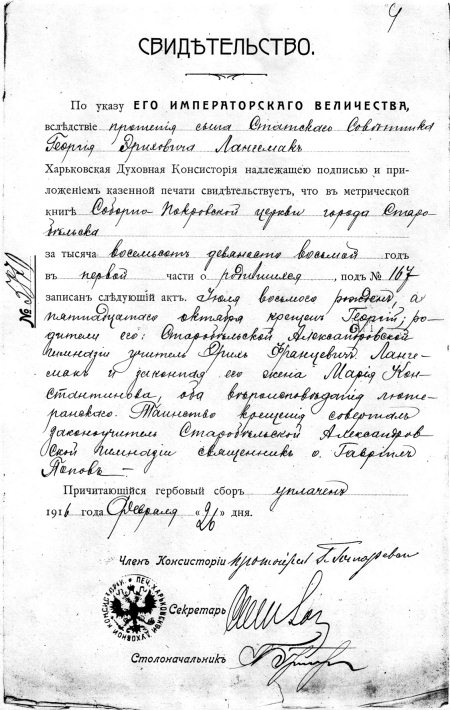 СВИДѢТЕЛЬСТВО.
По указу ЕГО ИМПЕРАТОРСКАГО ВЕЛИЧЕСТВА,
вслѣдствіе прошенія сына Статскаго Совѣтника
Георгія Эриховича Лангемакъ
Харьковская Духовная Консисторія надлежащею подписью и при-
ложеніемъ казенной печати свидѣтельствуетъ, что въ метрической
книгѣ Соборно-Покровской церкви города Старо-
бѣльска
за тысяча восемьсот девяносто восьмой годъ
въ первой части о родившихся, подъ № 167
записанъ слѣдующій актъ. Іюля восьмого рожденъ, а
пятнадцатаго октября крещенъ Георгій; ро-
дители его: Старобѣльской Александровской
гимназіи учитель Эрихъ Францевичъ Ланге-
макъ и законная его жена Марія Кон-
стантинова, оба вѣроисповѣданія люте-
ранскаго. Таинство крещенія совершалъ
законоучитель Старобѣльской Александров-
ской гимназіи священникъ о. Гавріилъ
Поповъ —
Причитающійся гербовый сборъ уплаченъ
1916 года Февраля «26» дня.
Членъ Консисторіи протоіерей
Секретарь
Столоначальникъ
ПЕЧ. ХАРЬКОВСКОЙ ДУХОВНОЙ КОНСИСТОРІИ